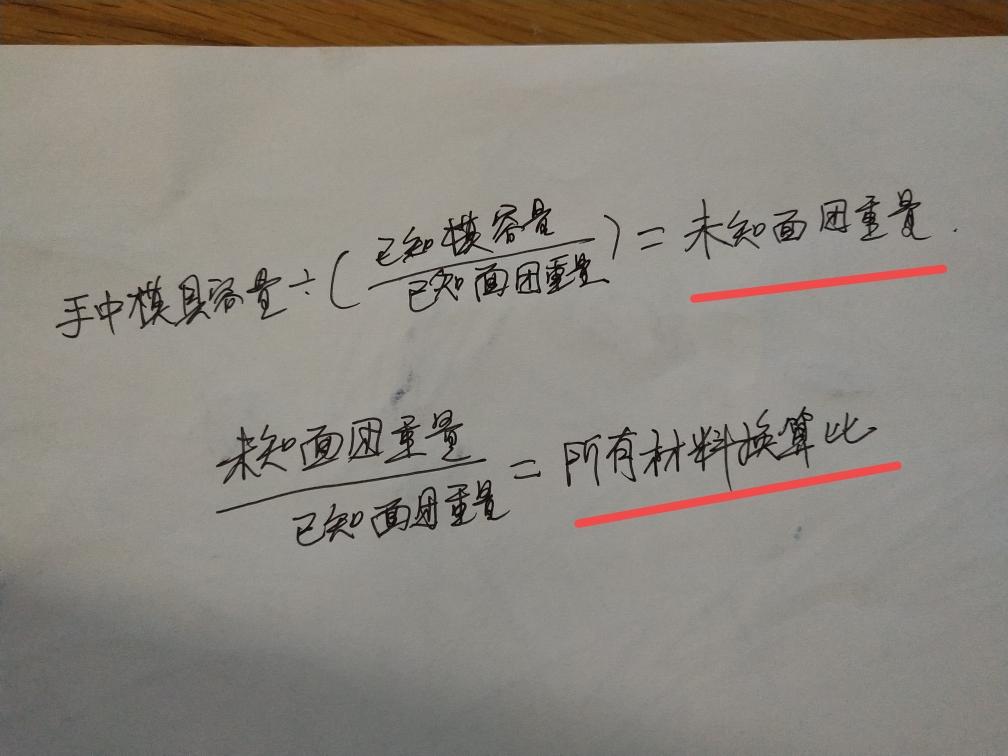 手中模具容量÷(已知模容量/已知面团重量)=未知面团重量.
未知面团重量/已知面团重量=所有材料换算比